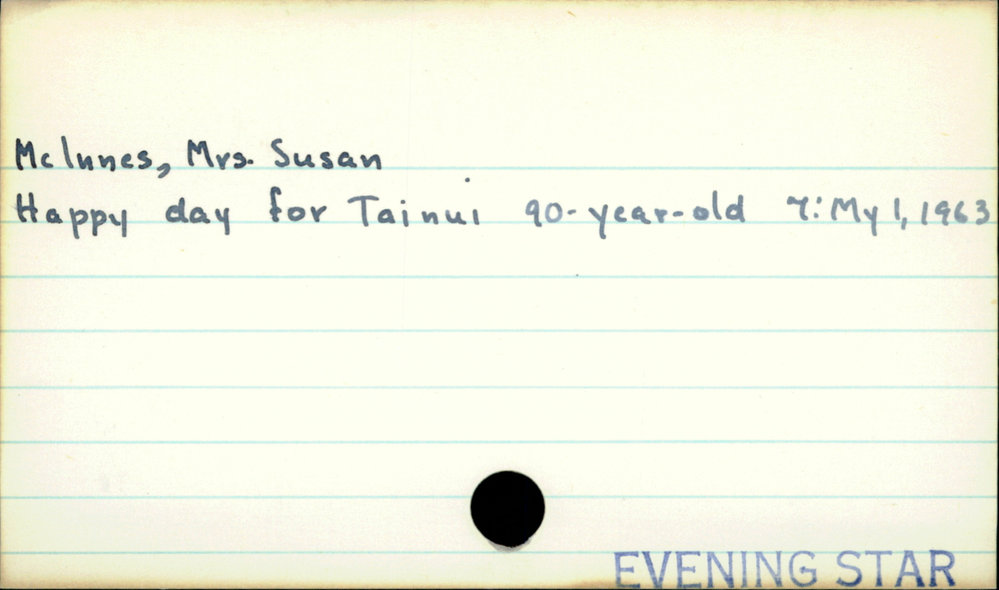 McInnes, Mrs. Susan
Happy day for Tainui 90-year-old 7: My 1, 1963
EVENING STAR